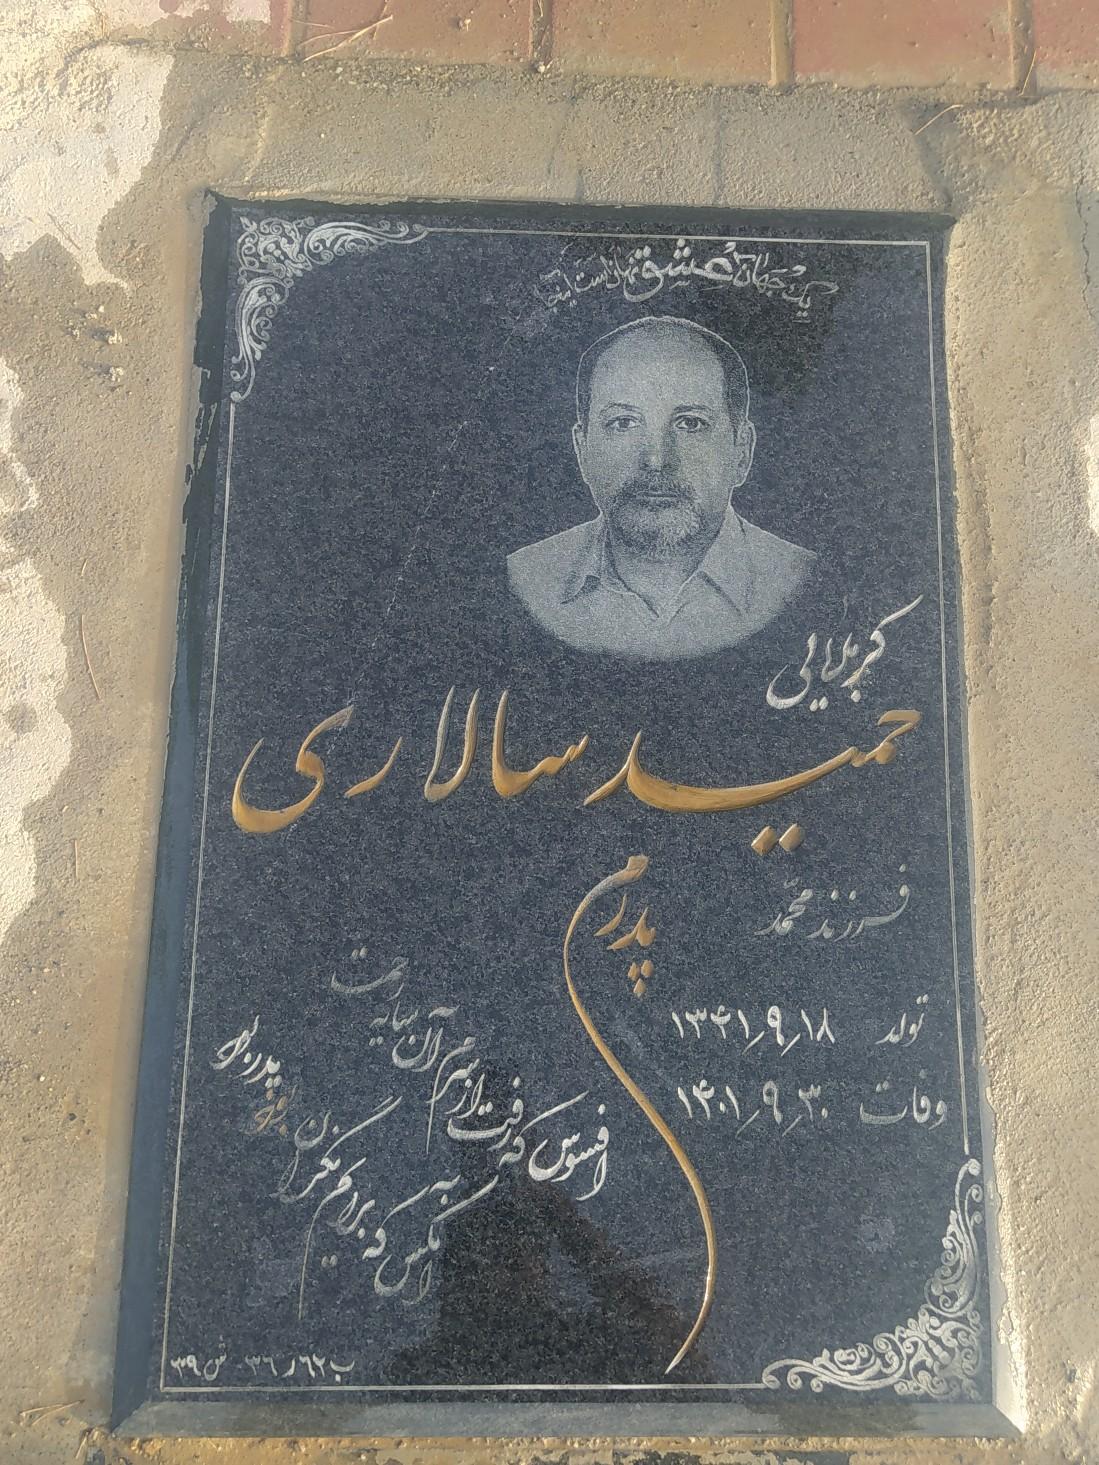 یک جهان عشق نهان است اینجا
کربلایی
حمید سالاری
فرزند محمد
پدرم
تولد ۱۳۴۱٫۹٫۱۸
وفات ۱۴۰۱٫۹٫۳۰
افسوس که رفت از سرم آن سایه رحمت
آنکس که برایم نگران بود پدر بود
ب ۶۲ ر ۳۶ - ش ۳۹